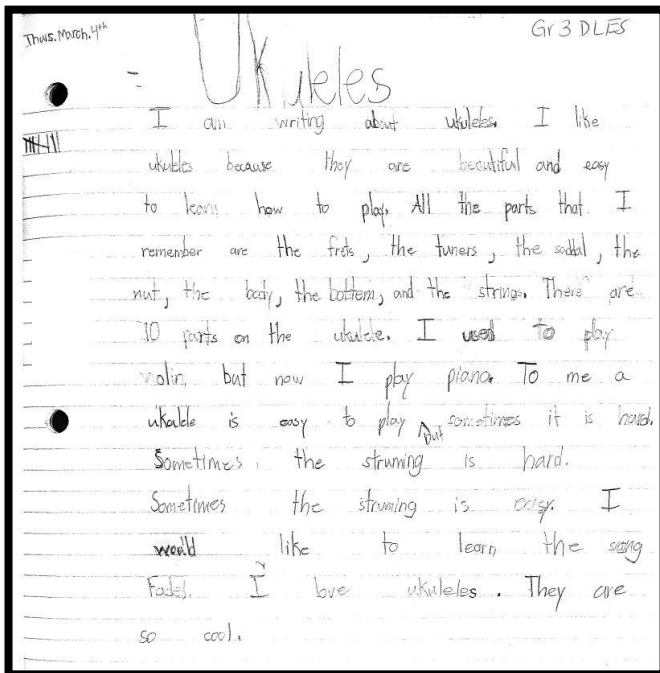 Thurs. March. 4th
Gr 3 DLES
Ukuleles
I am writing about ukuleles. I like
ukuleles because they are beautiful and easy
to learn how to play. All the parts that I
remember are the frets, the tuners, the saddal, the
nut, the body, the bottem, and the strings. There are
10 parts on the ukulele. I used to play
violin but now I play piano. To me a
ukulele is easy to play but sometimes it is hard.
Sometimes the struming is hard.
Sometimes the struming is easy. I
would like to learn the song
Faded. I love ukuleles. They are
so cool.